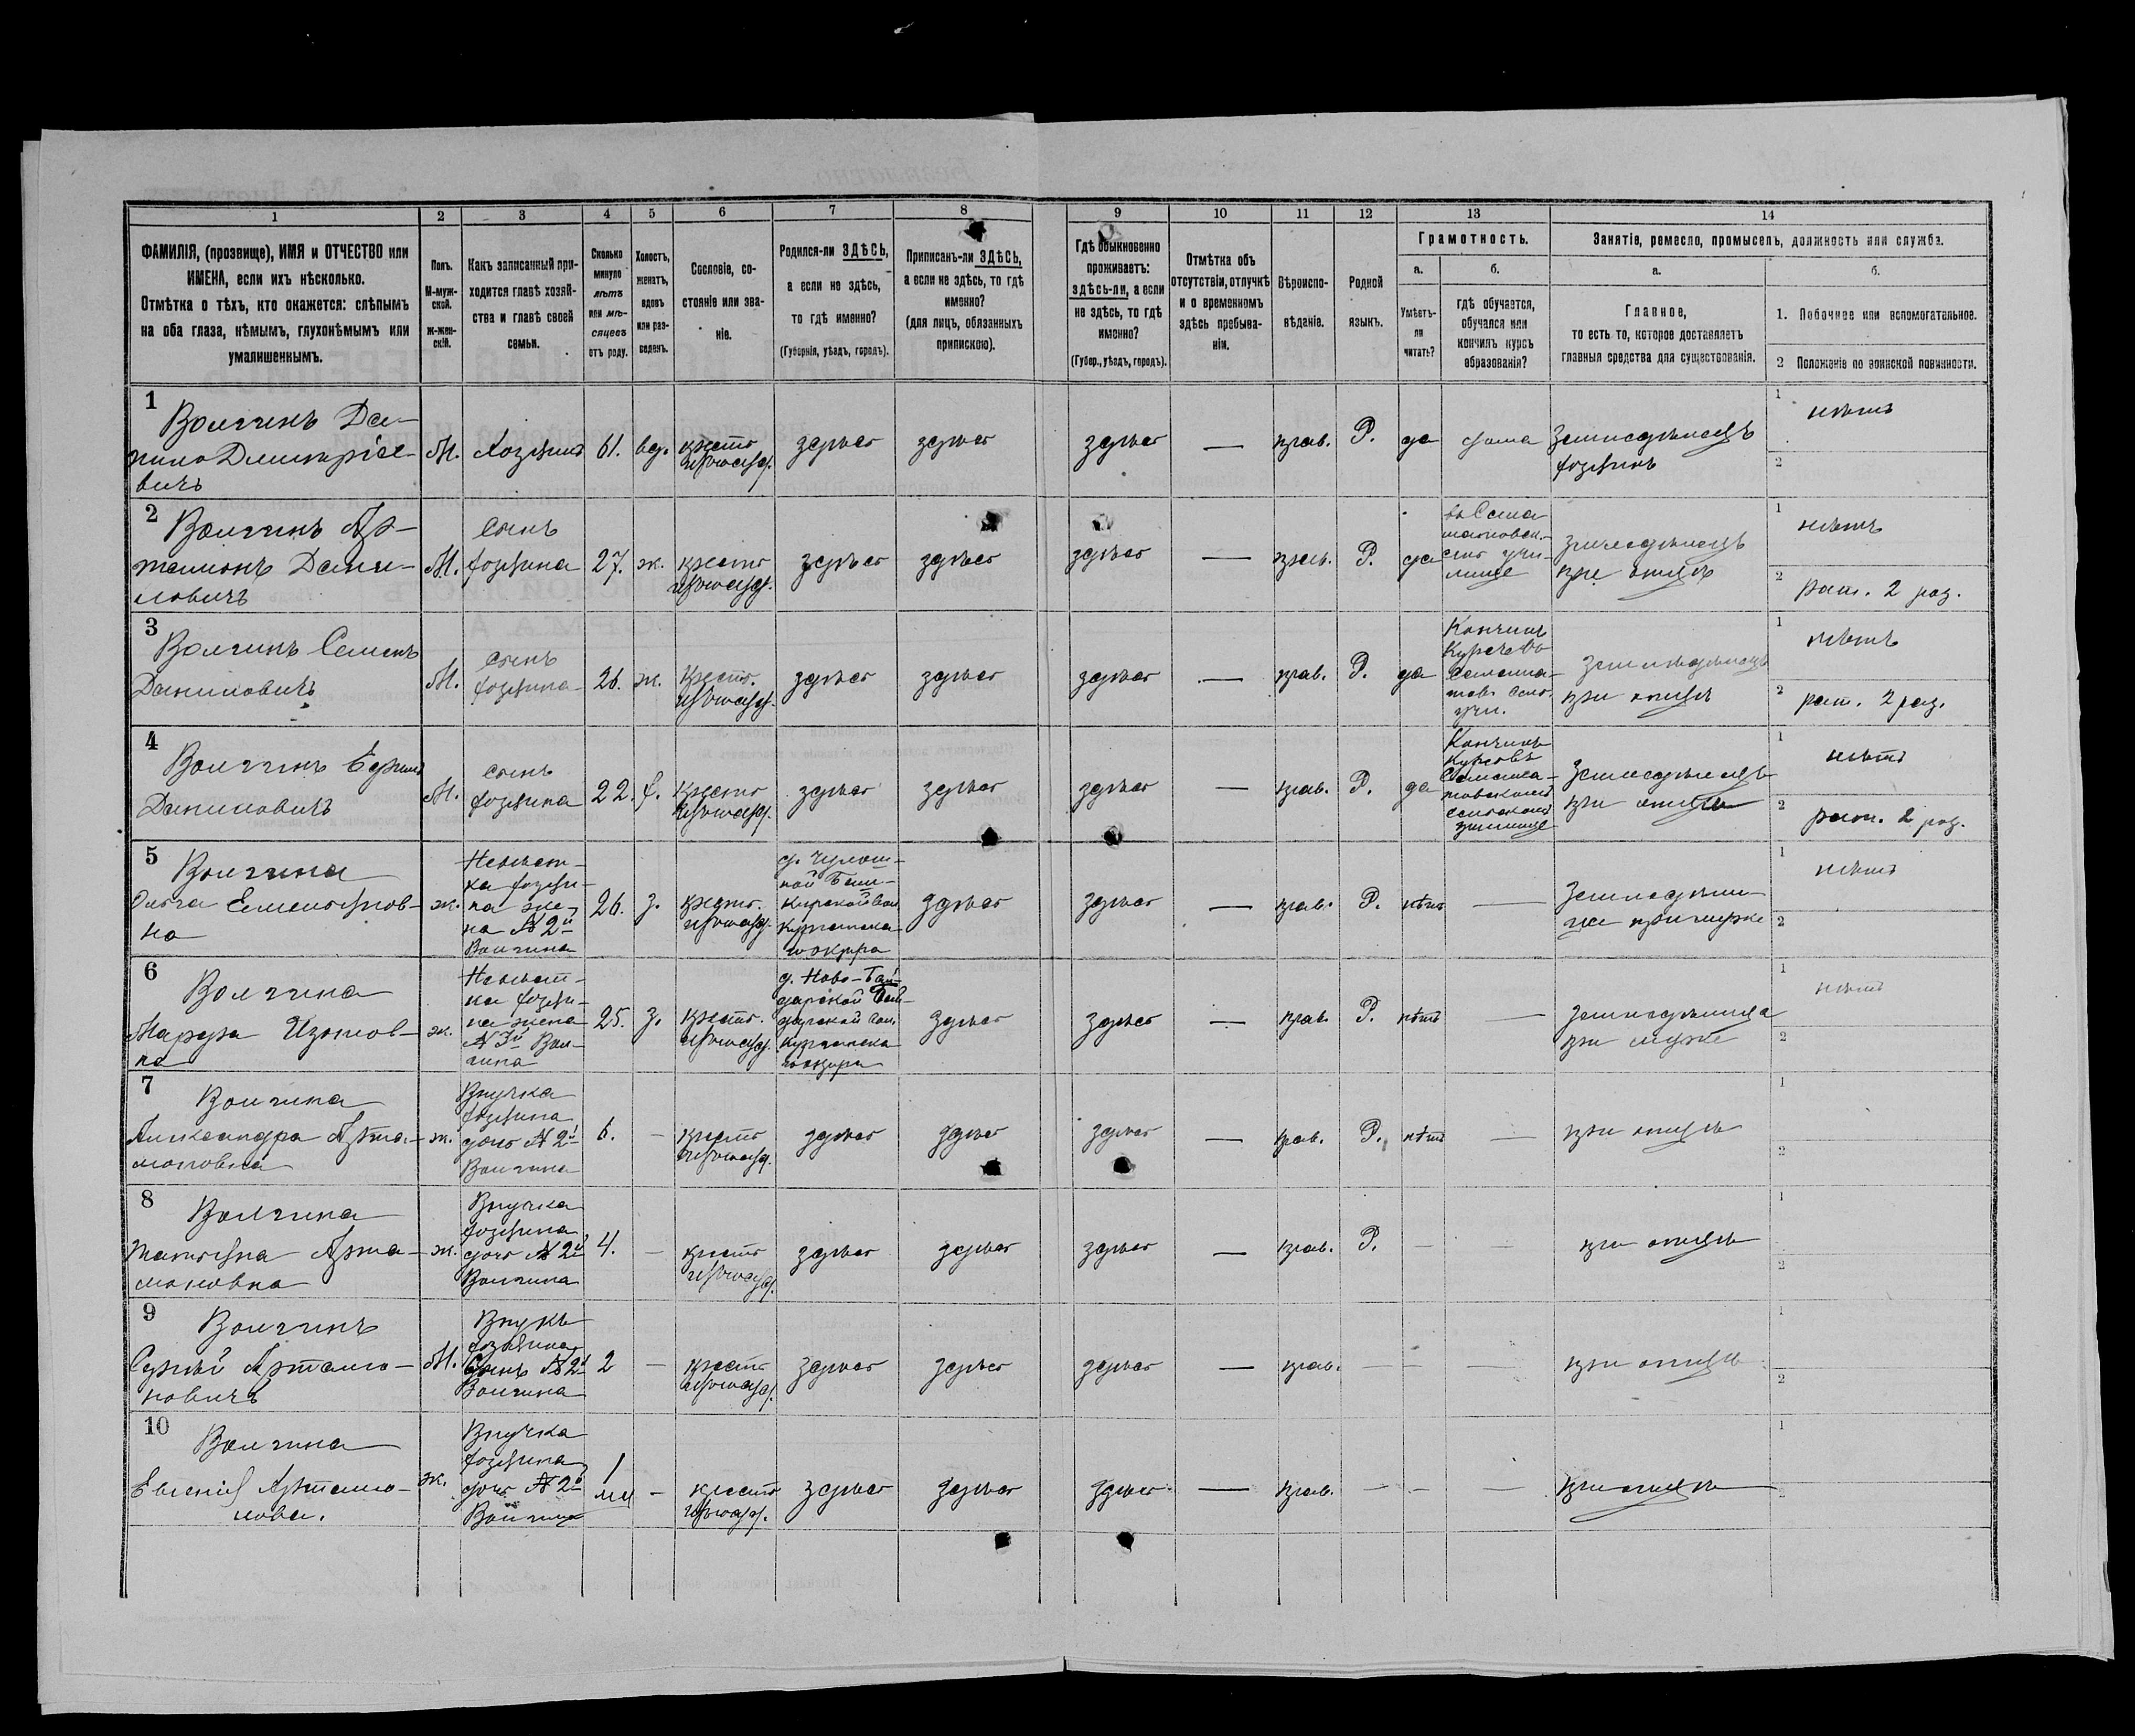 1 2 3 4 5 6 7 8 9 10 11 12 13 14
ФАМИЛІЯ, (прозвище), ИМЯ и ОТЧЕСТВО или
ИМЕНА, если ихъ нѣсколько.
Отмѣтка о тѣхъ, кто окажется: слѣпымъ
на оба глаза, нѣмымъ, глухонѣмымъ или
умалишеннымъ.
Полъ.
М-муж-
ской.
ж-жен-
скій.
Какъ записанный при-
ходится главѣ хозяй-
ства и главѣ своей
семьи.
Сколько
минуло
лѣтъ
или мѣ-
сяцевъ
отъ роду.
Холостъ,
женатъ,
вдовъ
или раз-
веденъ.
Сословіе, со-
стояніе или зва-
ніе.
Родился-ли ЗДѢСЬ,
а если не здѣсь,
то гдѣ именно?
(Губернія, уѣздъ, городъ).
Приписанъ-ли ЗДѢСЬ,
а если не здѣсь, то гдѣ
именно?
(для лицъ, обязанныхъ
припискою).
Гдѣ обыкновенно
проживаетъ:
здѣсь-ли, а если
не здѣсь, то гдѣ
именно?
(Губер., уѣздъ, городъ).
Отмѣтка объ
отсутствіи, отлучкѣ
и о временномъ
здѣсь пребыва-
ніи.
Вѣроиспо-
вѣданіе.
Родной
языкъ.
Грамотность.
а.
Умѣетъ-
ли
читать?
б.
гдѣ обучается,
обучался или
кончилъ курсъ
образованія?
Занятіе, ремесло, промыселъ, должность или служба.
а.
Главное,
то есть то, которое доставляетъ
главныя средства для существованія.
б.
1. Побочное или вспомогательное.
2 Положеніе по воинской повинности.
1
Волгинъ Да-
нило Дмитріе-
вичъ
М.
Хозяинъ
61.
вд.
здѣсь
здѣсь
здѣсь
—
прав.
Р.
да
дома
Земледѣлецъ
хозяинъ
1 нѣтъ
2
2
Волгинъ Ар-
тамонъ Дани-
ловичъ
М.
сынъ
хозяина
27.
ж.
здѣсь
здѣсь
здѣсь
—
прав.
Р.
да
учи-
лище
земледѣлецъ
при отцѣ
1 нѣтъ
2 рат. 2 раз.
3
Волгинъ Семенъ
Даниловичъ
М.
сынъ
хозяина
26.
ж.
здѣсь
здѣсь
здѣсь
—
прав.
Р.
да
Кончилъ
учи.
земледѣлецъ
при отцѣ
1 нѣтъ
2 рат. 2 раз.
4
Волгинъ Ефимъ
Даниловичъ
М.
сынъ
хозяина
22.
х.
здѣсь
здѣсь
здѣсь
—
прав.
Р.
да
Кончилъ
училище
Земледѣлецъ
при отцѣ
1 нѣтъ
2 рат. 2 раз.
5
Волгина
Ольга Емельянов-
на
ж.
Невѣст-
ка хозяи-
на же-
на № 2й
Волгина
26.
з.
Курганска-
го округа
здѣсь
здѣсь
—
прав.
Р.
нѣтъ
—
Земледѣли-
ца при мужѣ
1 нѣтъ
2
6
Волгина
Марфа Изотов-
на
ж.
Невѣст-
ка хозяи-
на жена
№ 3й Вол-
гина
25.
з.
Кургanска-
го округа
здѣсь
здѣсь
—
прав.
Р.
нѣтъ
—
Земледѣлица
при мужѣ
1 нѣтъ
2
7
Волгина
Александра Арта-
моновна
ж.
Внучка
хозяина
дочь № 2й
Волгина
6.
—
здѣсь
здѣсь
здѣсь
—
прав.
Р.
нѣтъ
—
при отцѣ
1
2
8
Волгина
Татьяна Арта-
моновна
ж.
Внучка
хозяина
дочь № 2й
Волгина
4.
—
здѣсь
здѣсь
здѣсь
—
прав.
Р.
—
—
при отцѣ
1
2
9
Волгинъ
Сергѣй Артамо-
новичъ
М.
Внукъ
хозяина
сынъ № 2й
Волгина
2
—
здѣсь
здѣсь
здѣсь
—
прав.
—
—
—
при отцѣ
1
2
10
Волгина
Евгенія Артамо-
нова.
ж.
Внучка
хозяина
дочь № 2й
Волгина
1
—
здѣсь
здѣсь
здѣсь
—
прав.
—
—
—
при отцѣ
1
2